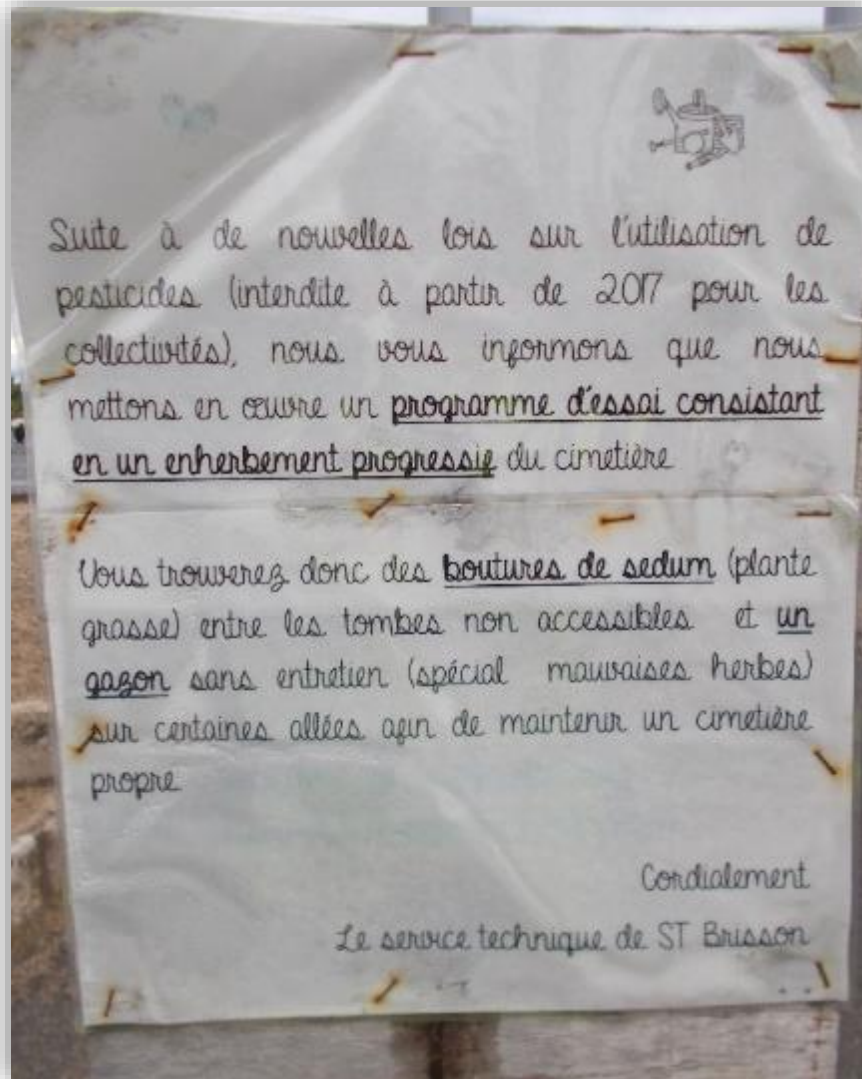 Suite à de nouvelles lois sur l'utilisation de
pesticides (interdite à partir de 2017 pour les
collectivités), nous vous informons que nous
mettons en œuvre un programme d'essai consistant
en un enherbement progressif du cimetière
Vous trouverez donc des boutures de sedum (plante
grasse) entre les tombes non accessibles et un
gazon sans entretien (spécial mauvaises herbes)
sur certaines allées afin de maintenir un cimetière
propre
Cordialement
Le service technique de ST Brisson